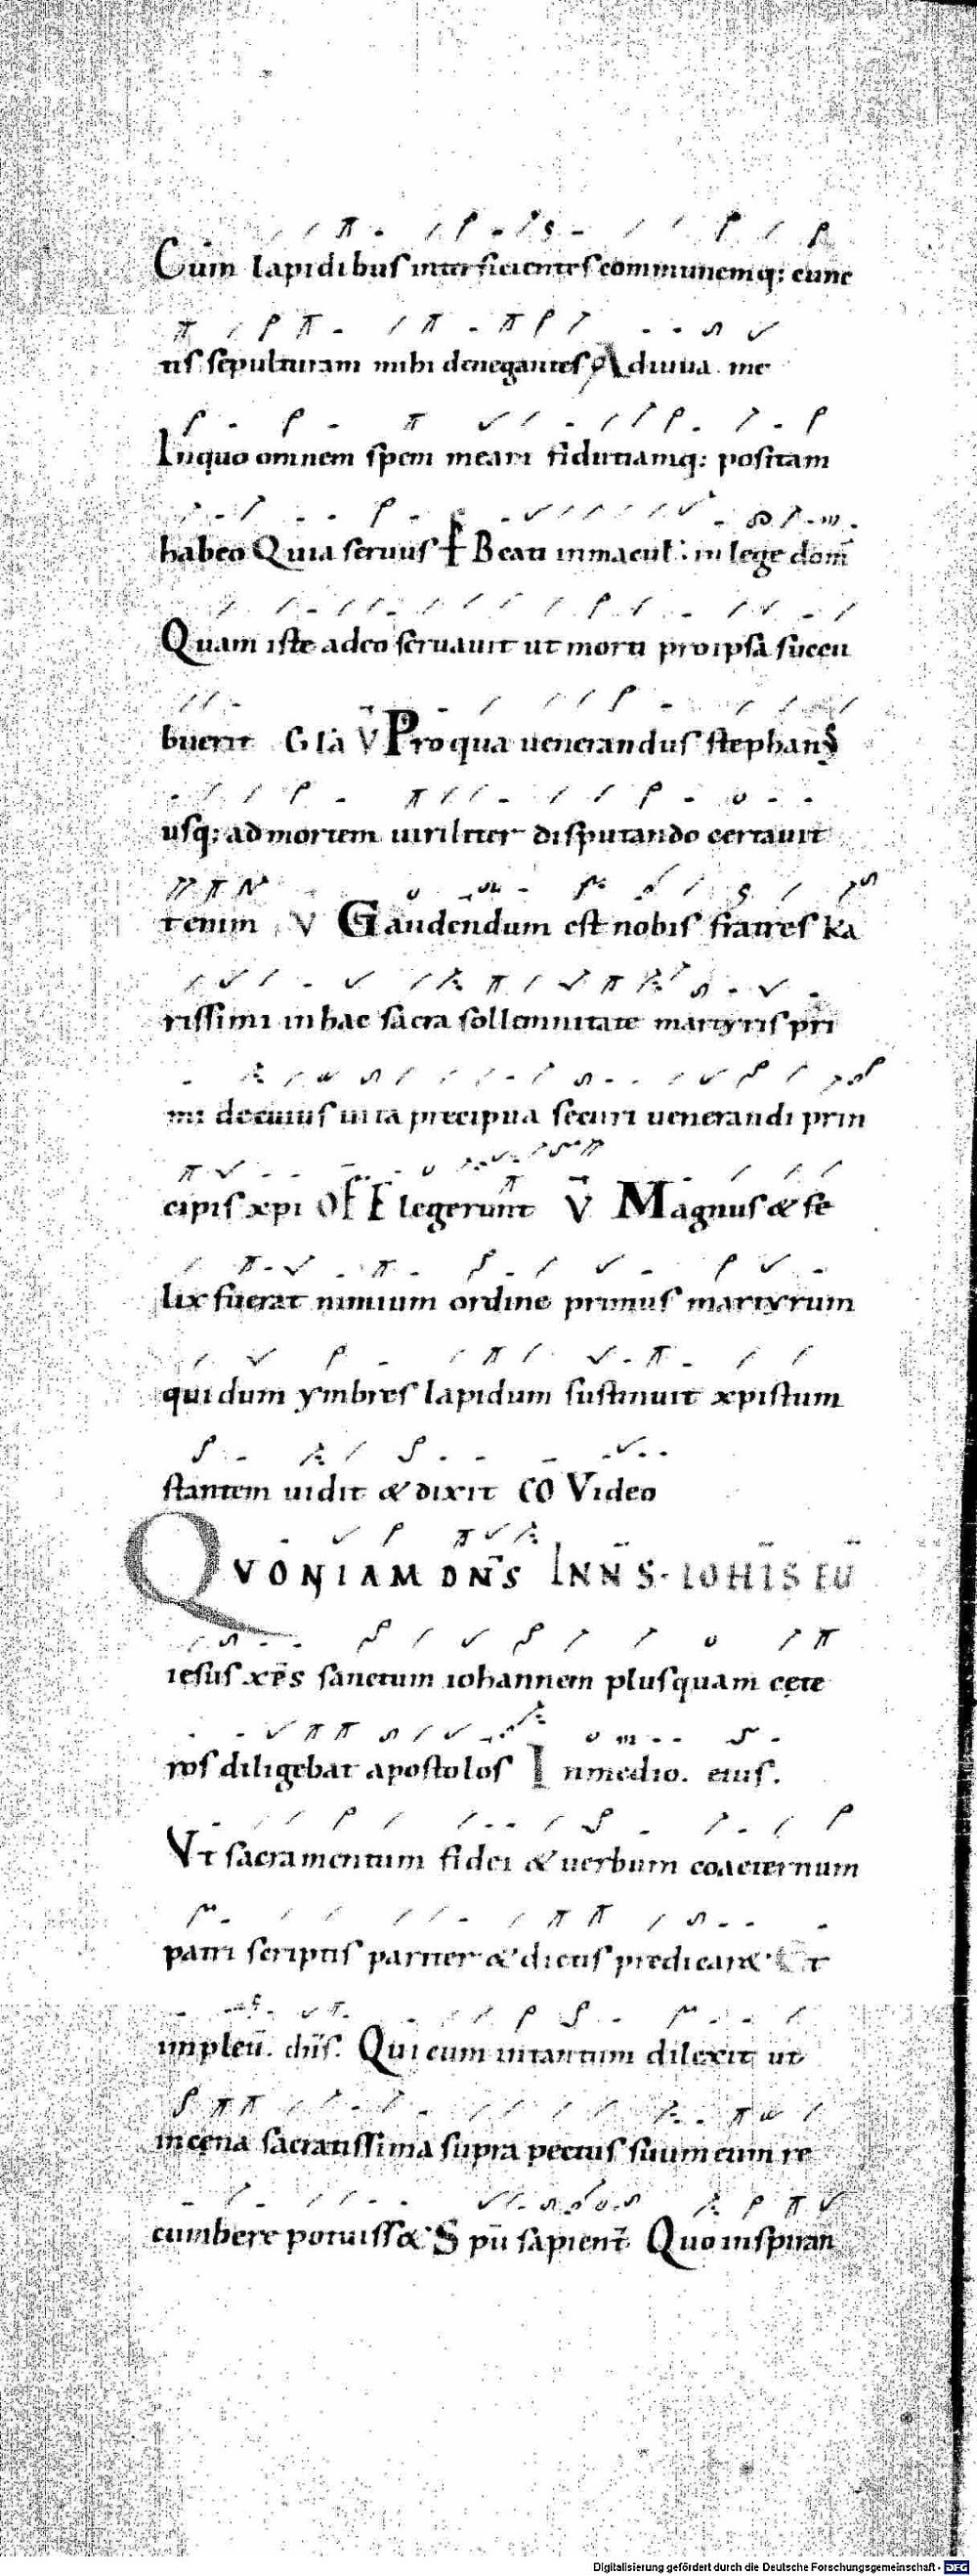 Cum lapidibus interficientes communemq; cunc
tis sepulturam mihi denegantes Adiuua me
Inquo omnem spem meam fidutiamq; positam
habeo Quia seruus Beati inmacul in lege dom̄
Quam iste adeo seruauit ut mori pro ipsa succu
buerit Gla V Pro qua uenerandus stephanus
usq; ad mortem uiriliter disputando certauit
Etenim V Gaudendum est nobis fratres ka
rissimi in hac sacra sollemnitate martyris pri
mi de cuius uita precipua securi uenerandi prin
cipis xpi OF Elegerunt V Magnus & fe
lix fuerat nimium ordine primus martyrum
qui dum ymbres lapidum sustinuit xpistum
stantem uidit & dixit CO Video
QVONIAM DN̄S IN N̄ S. IOHIS EŪ
iesus xp̄s sanctum iohannem plusquam cęte
ros diligebat apostolos In medio. eius.
Vt sacramentum fidei & uerbum coaeternum
patri scriptis pariter & dictis predicar& Et
impleū. dn̄s. Qui eum intantum dilexit ut
in cęna sacratissima supra pectus suum eum re
cumbere potuiss& S pū sapient̄ Quo inspiran
Digitalisierung gefördert durch die Deutsche Forschungsgemeinschaft - DFG